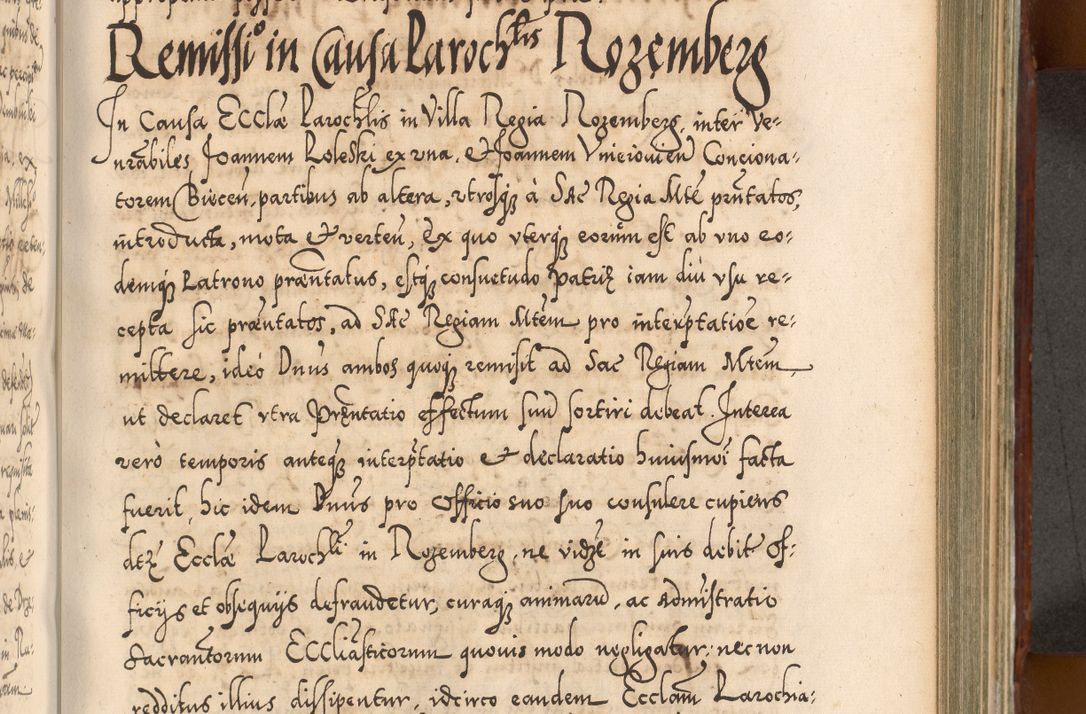 Remissio in Causa Paroch͠lis Rozemberg
In Causa ECClæ Paroch͠lis in Villa Regia Rozemberg, inter Ve-
nrãbiles Joannem Roleski ex vna, & Joannem Vnieiouien̄ Conciona-
torem Biecen̄, partibus ab altera, vtrosq̢ à SAC Regia Mte prñtatos,
introducta, mota & verten̄, Ex quo vterq̢ eorum est ab vno eo-
demq̢ Patrono præñtatus, estq̢ consuetudo Patriæ iam diu vsu re-
cepta sic præñtatos, ad SAC Regiam Mtem pro interp̃tatioe re-
mittere, ideo Dnus ambos quoq̢ remisit ad Sac Regiam Mtem
ut declaret vtra Præñtatio effectum suū sortiri debeat. Interea
verò temporis anteq̢ interp̃tatio & declaratio huiusmoi facta
fuerit, hic idem Dnus pro officio suo suo consulere cupiens
dtæ Ecclæ Paroch͠li in Rozemberg, ne vidze in suis debit of-
ficijs et obsequijs defraudetur, curaq̢ animarū, ac Admistratio
Sacrãntorum ECCliãsticorum quouis modo negligatur, nec non
redditus illius dissipentur, idcirco eandem Ecclam Parochia-